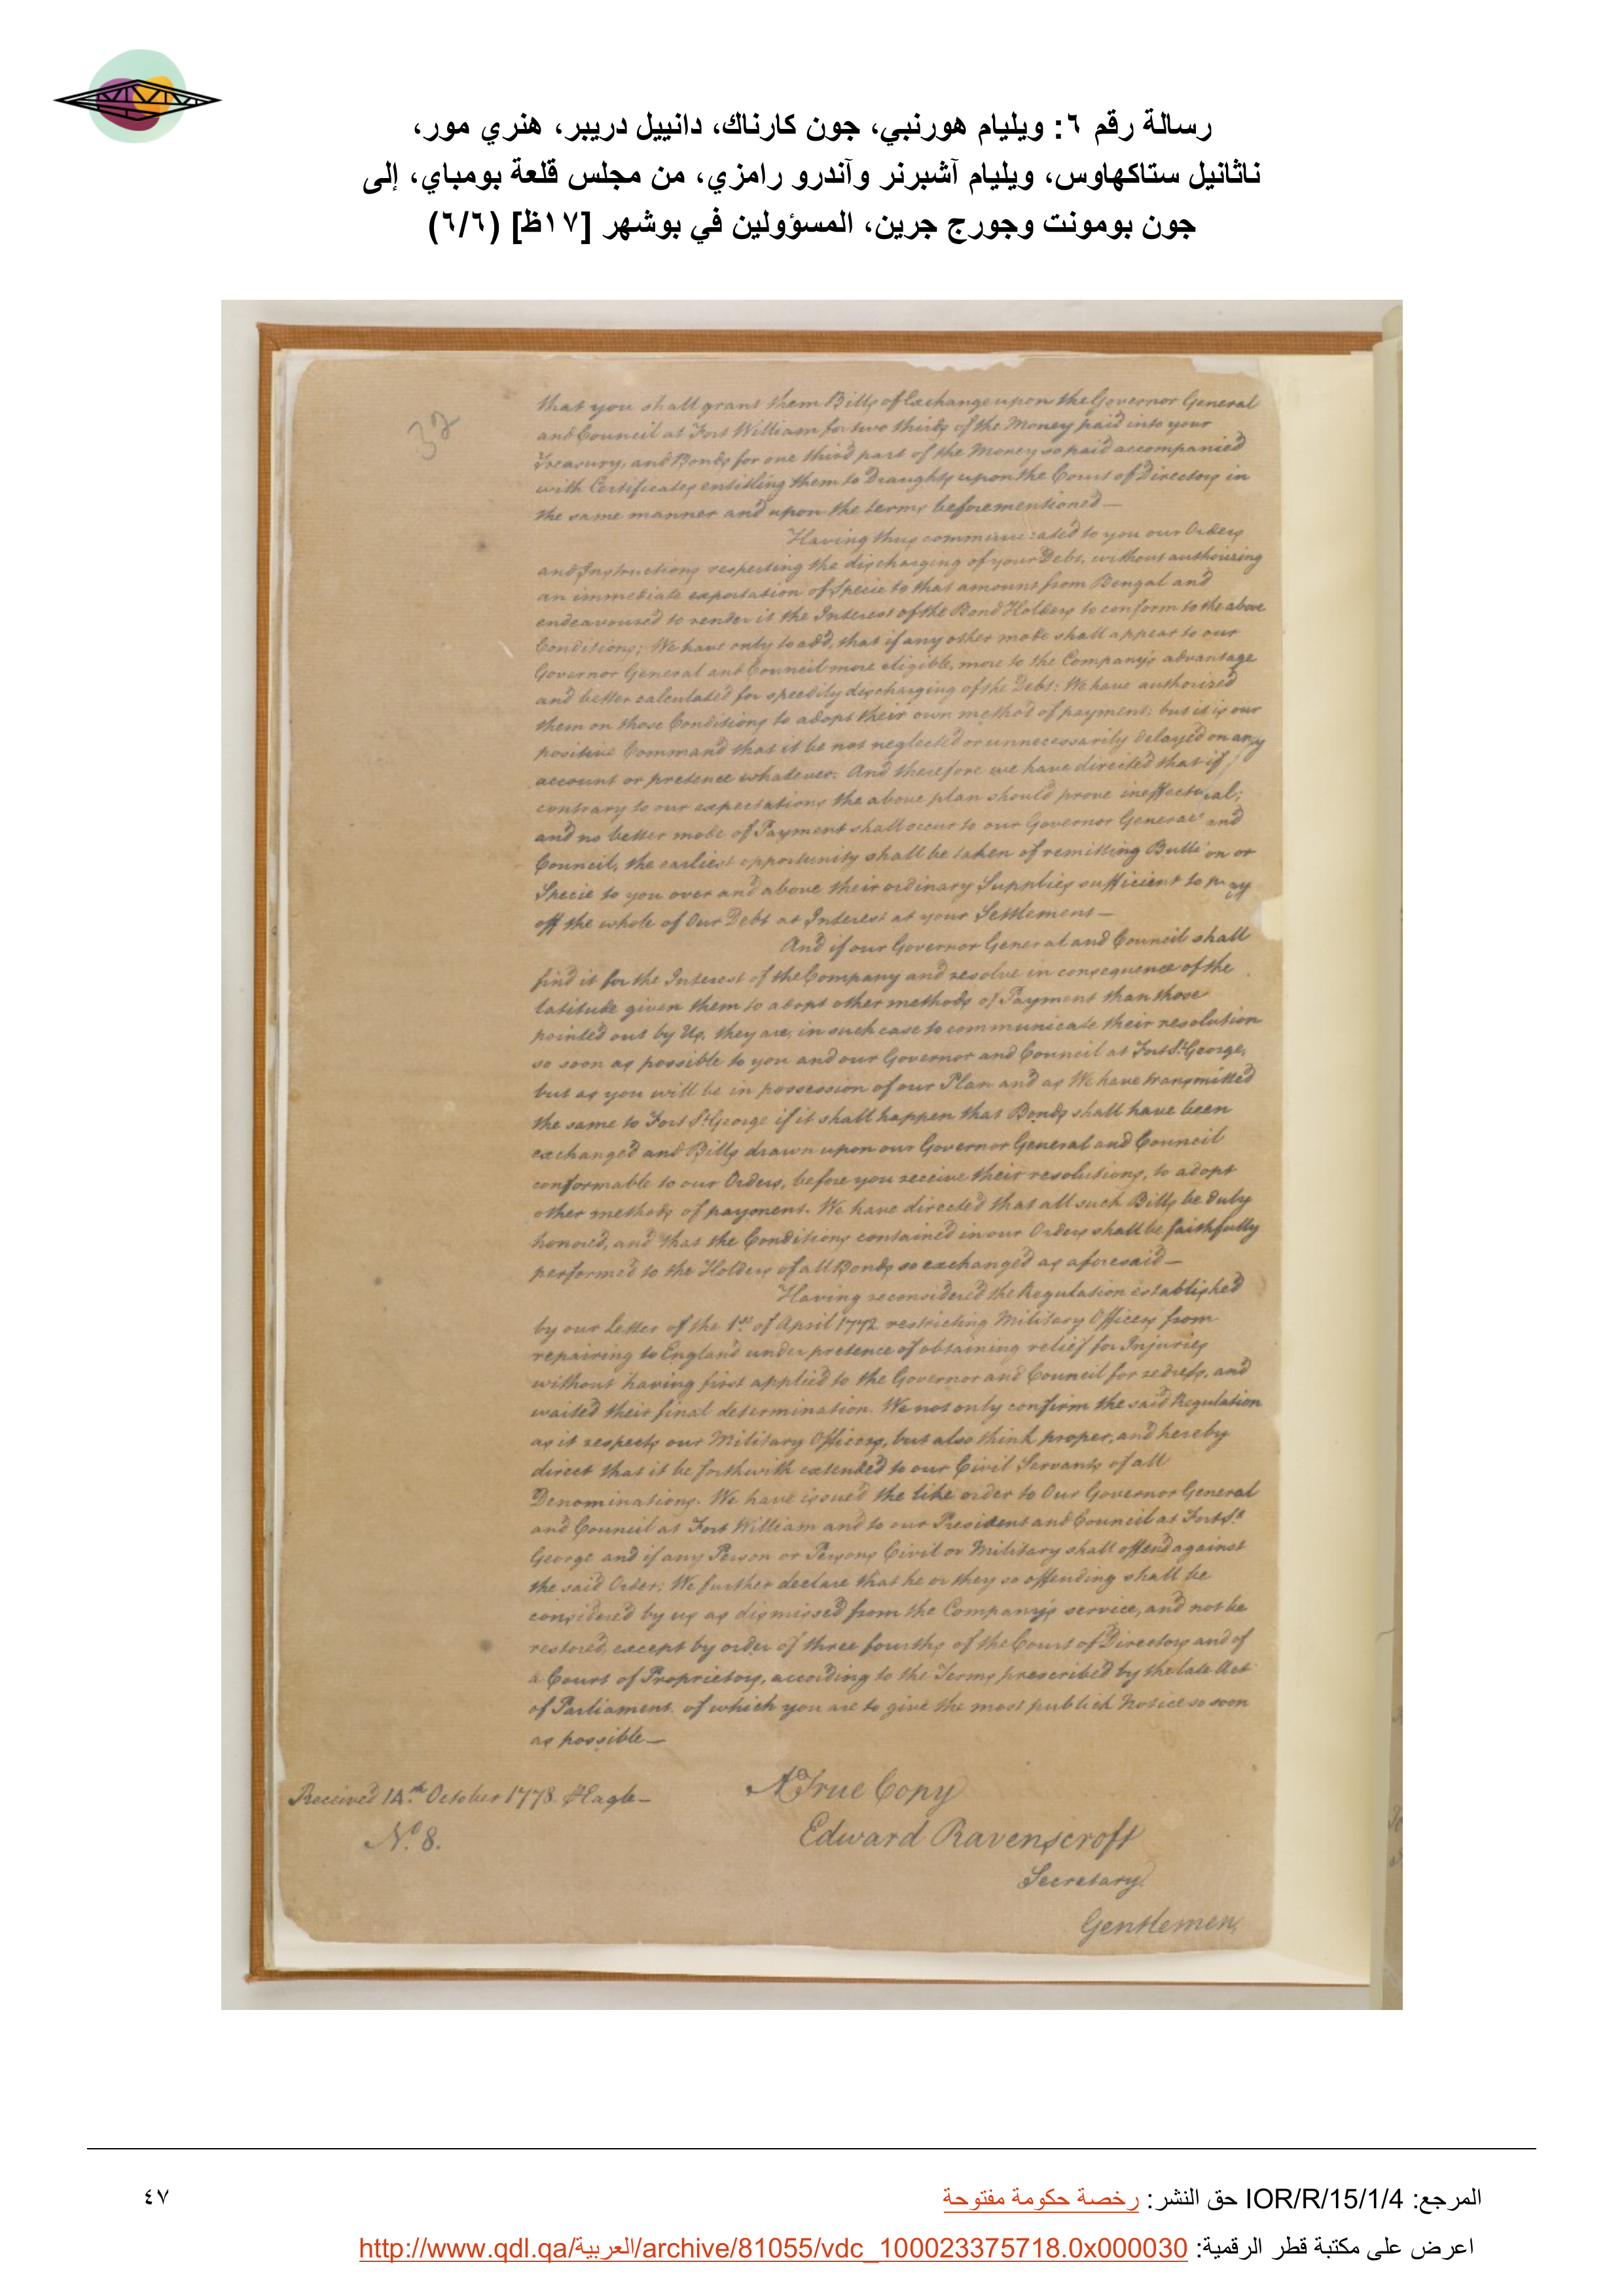 رسالة رقم ٦: ويليام هورنبي، جون كارناك، دانييل دريبر، هنري مور،
ناثانيل ستاكهاوس، ويليام آشبرنر وآندرو رامزي، من مجلس قلعة بومباي، إلى
جون بومونت وجورج جرين، المسؤولين في بوشهر [١٧ظ] (٦/٦)
32
that you shall grant them Bills of Exchange upon the Governor General
and Council at Fort William for two thirds of the Money paid into your
Treasury, and Bonds for one third part of the Money so paid accompanied
with Certificates entitling them to Draughts upon the Court of Directors in
the same manner and upon the terms beforementioned —
Having thus communicated to you our Orders
and Instructions respecting the discharging of your Debt, without authorizing
an immediate exportation of Specie to that amount from Bengal and
endeavoured to render it the Interest of the Bond Holders to conform to the above
Conditions; We have only to add, that if any other mode shall appear to our
Governor General and Council more eligible, more to the Company's advantage
and better calculated for speedily discharging of the Debt: We have authorized
them on those Conditions to adopt their own method of payment; but it is our
positive Command that it be not neglected or unnecessarily delayed on any
account or pretence whatever. And therefore we have directed that if,
contrary to our expectations the above plan should prove ineffectual;
and no better mode of Payment shall occur to our Governor General and
Council, the earliest opportunity shall be taken of remitting Bullion or
Specie to you over and above their ordinary Supplies sufficient to pay
off the whole of Our Debt at Interest at your Settlement —
And if our Governor General and Council shall
find it for the Interest of the Company and resolve in consequence of the
latitude given them to adopt other methods of Payment than those
pointed out by Us, they are, in such case to communicate their resolution
so soon as possible to you and our Governor and Council at Fort St. George,
but as you will be in possession of our Plan and as We have transmitted
the same to Fort St. George if it shall happen that Bonds shall have been
exchanged and Bills drawn upon our Governor General and Council
conformable to our Orders, before you receive their resolutions, to adopt
other methods of payment. We have directed that all such Bills be duly
honored, and that the Conditions contained in our Orders shall be faithfully
performed to the Holders of all Bonds so exchanged as aforesaid —
Having reconsidered the Regulation established
by our Letter of the 1st. of April 1772 restricting Military Officers from
repairing to England under pretence of obtaining relief for Injuries
without having first applied to the Governor and Council for redress, and
waited their final determination. We not only confirm the said Regulation
as it respects our Military Officers, but also think proper, and hereby
direct that it be forthwith extended to our Civil Servants of all
Denominations. We have issued the like order to Our Governor General
and Council at Fort William and to our President and Council at Fort St.
George and if any Person or Persons Civil or Military shall offend against
the said Order; We further declare that he or they so offending shall be
considered by us as dismissed from the Company's service, and not be
restored, except by order of three fourths of the Court of Directors and of
a Court of Proprietors, according to the Terms prescribed by the late Act
of Parliament. of which you are to give the most publick Notice so soon
as possible —
A True Copy
Received 14th. October 1778. Eagle —
Edward Ravenscroft
No. 8.
Secretary
Gentlemen,
المرجع: IOR/R/15/1/4 حق النشر: رخصة حكومة مفتوحة
٤٧
اعرض على مكتبة قطر الرقمية: http://www.qdl.qa/العربية/archive/81055/vdc_100023375718.0x000030